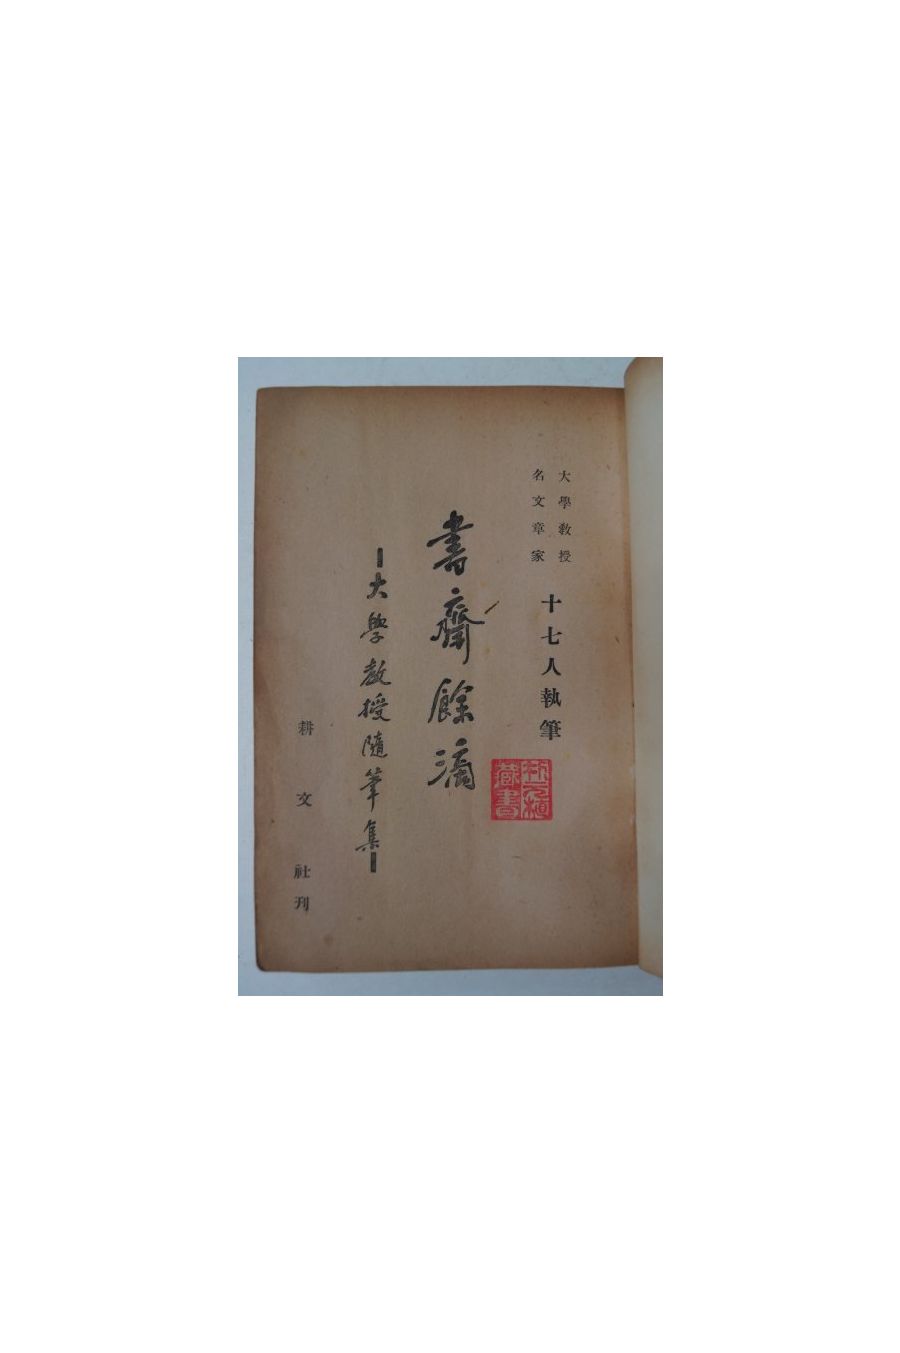 大學教授
名文章家
十七人執筆
書齋餘滴
大學教授隨筆集
耕文社刊
藏書